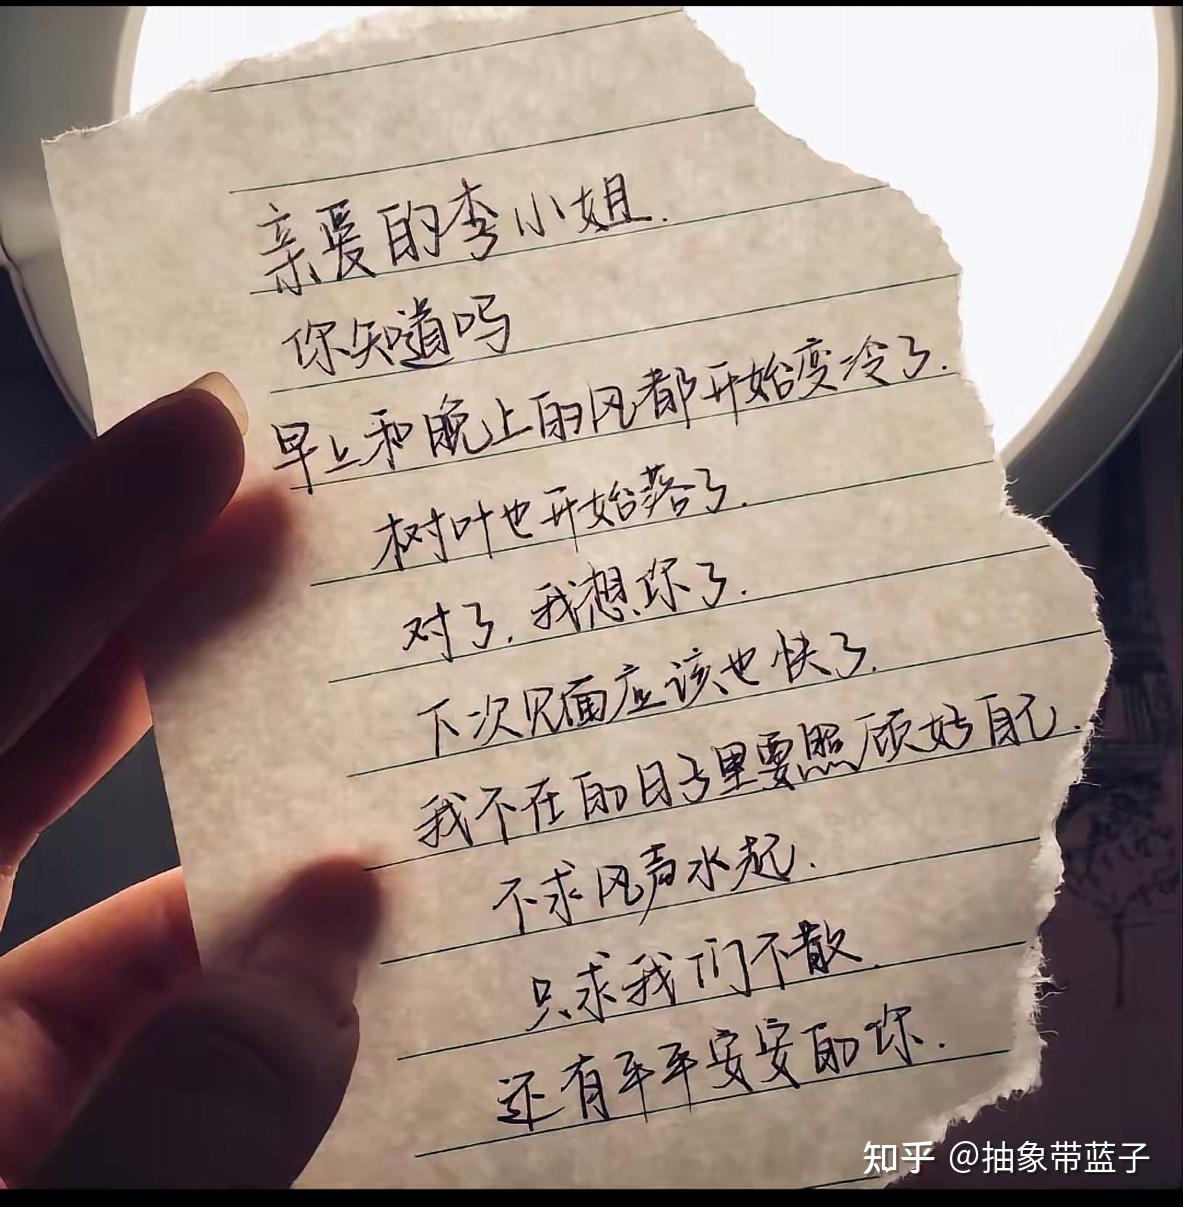 亲爱的李小姐.
你知道吗
早上和晚上的风都开始变冷了.
树叶也开始落了.
对了.我想你了.
下次见面应该也快了.
我不在的日子里要照顾好自己.
不求风声水起.
只求我们不散.
还有平平安安的你.
知乎 @抽象带蓝子